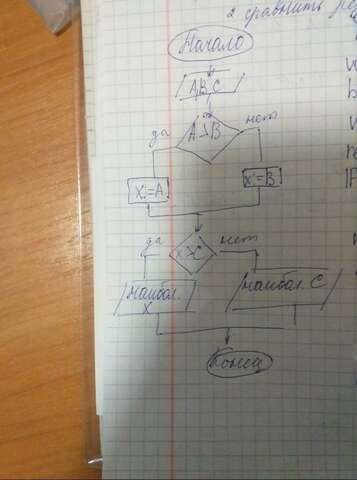 2 сравнить
Начало
A, B, C
да A > B нет
X:=A X:=B
да X > C нет
наибол. X
наибол. C
Конец